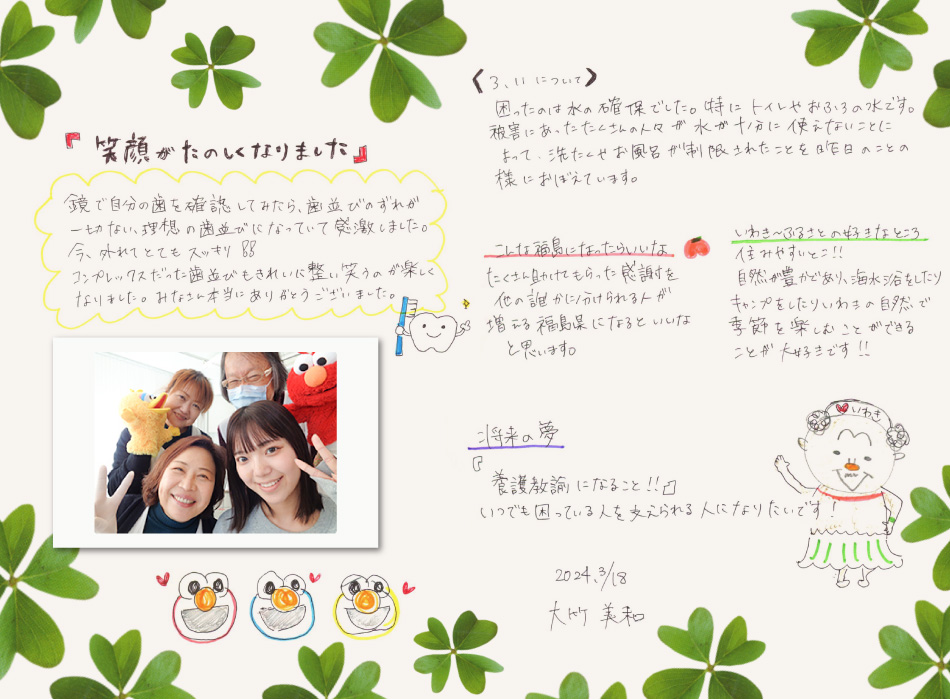 『笑顔がたのしくなりました』
鏡で自分の歯を確認してみたら、歯並びのずれが
一切ない、理想の歯並びになっていて感激しました。
今、外れてとてもスッキリ!!
コンプレックスだった歯並びもきれいに整い笑うのが楽しく
なりました。みなさん本当にありがとうございました。
《3.11について》
困ったのは水の確保でした。特にトイレやおふろの水です。
被害にあったたくさんの人々が水が十分に使えないことに
よって、洗たくやお風呂が制限されたことを昨日のことの
様におぼえています。
こんな福島になったらいいな
たくさん助けてもらった感謝を
他の誰かに分けられる人が
増える福島県になるといいな
と思います。
いわき〜ふるさとの好きなところ
住みやすいとこ!!
自然が豊かであり、海水浴をしたり
キャンプをしたりいわきの自然で
季節を楽しむことができる
ことが大好きです!!
将来の夢
『養護教諭になること!!』
いつでも困っている人を支えられる人になりたいです!
いわき
2024.3/18
大竹 美和